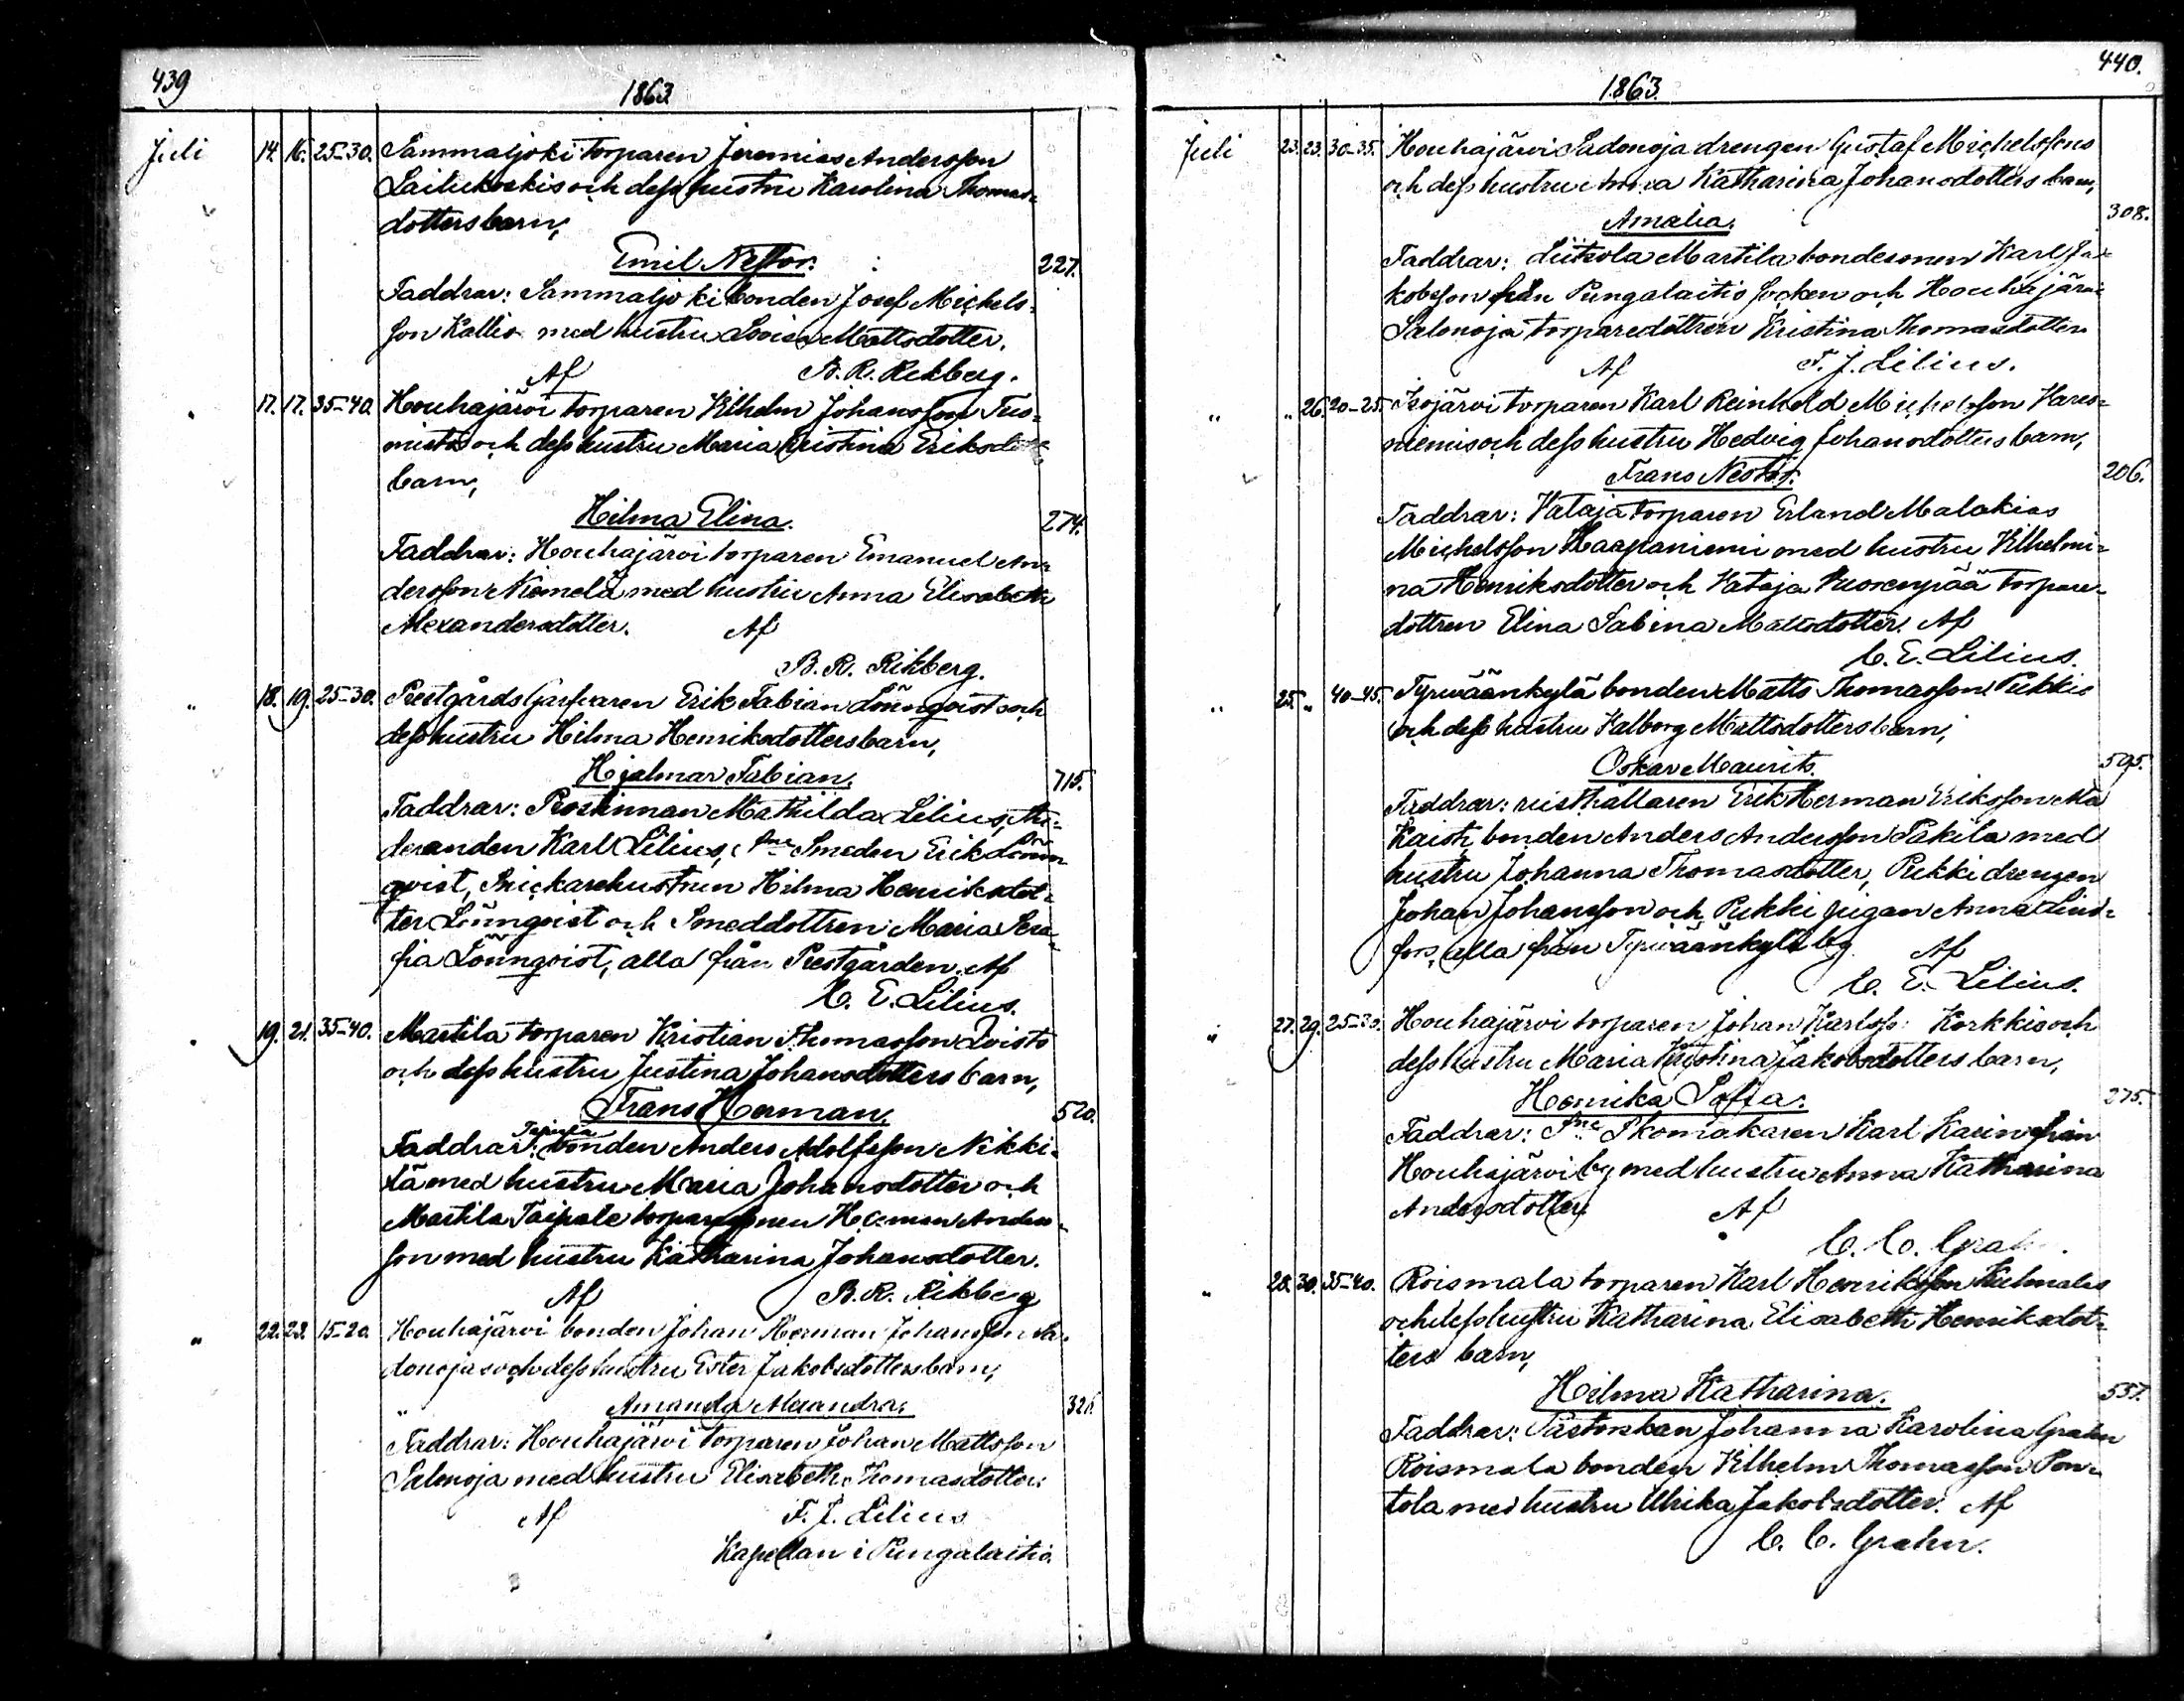 439
1863
Juli 14. 16. 25-30. Sammaljoki torparen Jeremias Andersson
Lailukoskis och dess hustru Karolina Thomas-
dotters barn,
Emil Nestor. 227.
Faddrar: Sammaljoki bonden Josef Michels-
son Kallio med hustru Lovisa Mattsdotter.
Af B. R. Rikberg.
17. 17. 35-40. Houhajärvi torparen Vilhelm Johansson Tuo-
mistos och dess hustru Maria Kristina Eriksdott
barn,
Hilma Elina. 274.
Faddrar: Houhajärvi torparen Emanuel An-
dersson Niemelä med hustru Anna Elisabeth
Alexandersdotter. Af
B. R. Rikberg.
" 18. 19. 25-30. Prestgårds Garfvaren Erik Fabian Lönnqvists och
dess hustru Hilma Henriksdotters barn,
Hjalmar Fabian. 715.
Faddrar: Prostinnan Mathilda Lilius, Stu-
deranden Karl Lilius, Sme Smeden Erik Lönn-
qvist, Snickarehustrun Hilma Henriksdot-
ter Lönnqvist och Smeddottren Maria Sera-
fia Lönnqvist, alla från Prestgården. Af
C. E. Lilius.
19. 21. 35-40. Martila torparen Kristian Thomasson Loisto
och dess hustru Justina Johansdotters barn,
Frans Herman. 520.
Faddrar: bonden Anders Adolfsson Nikki-
lä med hustru Maria Johansdotter och
Martila Taipale torparesonen Herman Anders-
son med hustru Katharina Johansdotter.
Af B. R. Rikberg
" 22. 23. 15-20. Houhajärvi bonden Johan Herman Johansson Sa-
donojas och dess hustru Ester Jakobsdotters barn,
Amanda Alexandra. 326.
Faddrar: Houhajärvi torparen Johan Mattsson
Salonoja med hustru Elisabeth Thomasdotter.
Af F. J. Lilius
Kapellan i Pungalaitio.
440.
1863.
Juli 23. 23. 30-35. Houhajärvi Sadonoja drengen Gustaf Michelssons
och dess hustru Anna Katharina Johansdotters barn,
Amalia. 308.
Faddrar: Liitsola Martila bondesonen Karl Ja-
kobsson från Pungalaitio Socken och Houhajärvi
Salonoja torparedottren Kristina Thomasdotter
Af F. J. Lilius.
" " 26. 20-25. Isojärvi torparen Karl Reinhold Michelsson Hares-
niemis och dess hustru Hedvig Johansdotters barn,
Frans Nestor. 206.
Faddrar: Vataja torparen Erland Malakias
Michelsson Haapaniemi med hustru Vilhelmi-
na Henriksdotter och Vataja Vuorenpää torpare-
dottren Elina Sabina Mattsdotter. Af
C. E. Lilius.
" 25. " 40-45. Tyrväänkylä bonden Matts Thomasson Pukkis
och dess hustru Valborg Mattsdotters barn,
Oskar Maurits. 595.
Faddrar: rusthållaren Erik Herman Eriksson Ala
Kaisti, bonden Anders Andersson Pakila med
hustru Johanna Thomasdotter, Pukki drengen
Johan Johansson och Pukki pigan Anna Lind-
fors, alla från Tyrväänkylä by. Af
C. E. Lilius.
" 27. 29. 25-30. Houhajärvi torparen Johan Karlss: Korkkis och
dess hustru Maria Kristina Jakobsdotters barn,
Henrika Sofia. 275.
Faddrar: Sme Skomakaren Karl Karin från
Houhajärvi by med hustru Anna Katharina
Andersdotter. Af
C. C. Grahn.
" 28. 30. 35-40. Roismala torparen Karl Henriksson Kulmalas
och dess hustru Katharina Elisabeth Henriksdot-
ters barn,
Hilma Katharina. 557.
Faddrar: Pastorskan Johanna Karolina Grahn
Roismala bonden Vilhelm Thomasson Pon-
tola med hustru Ulrika Jakobsdotter. Af
C. C. Grahn.